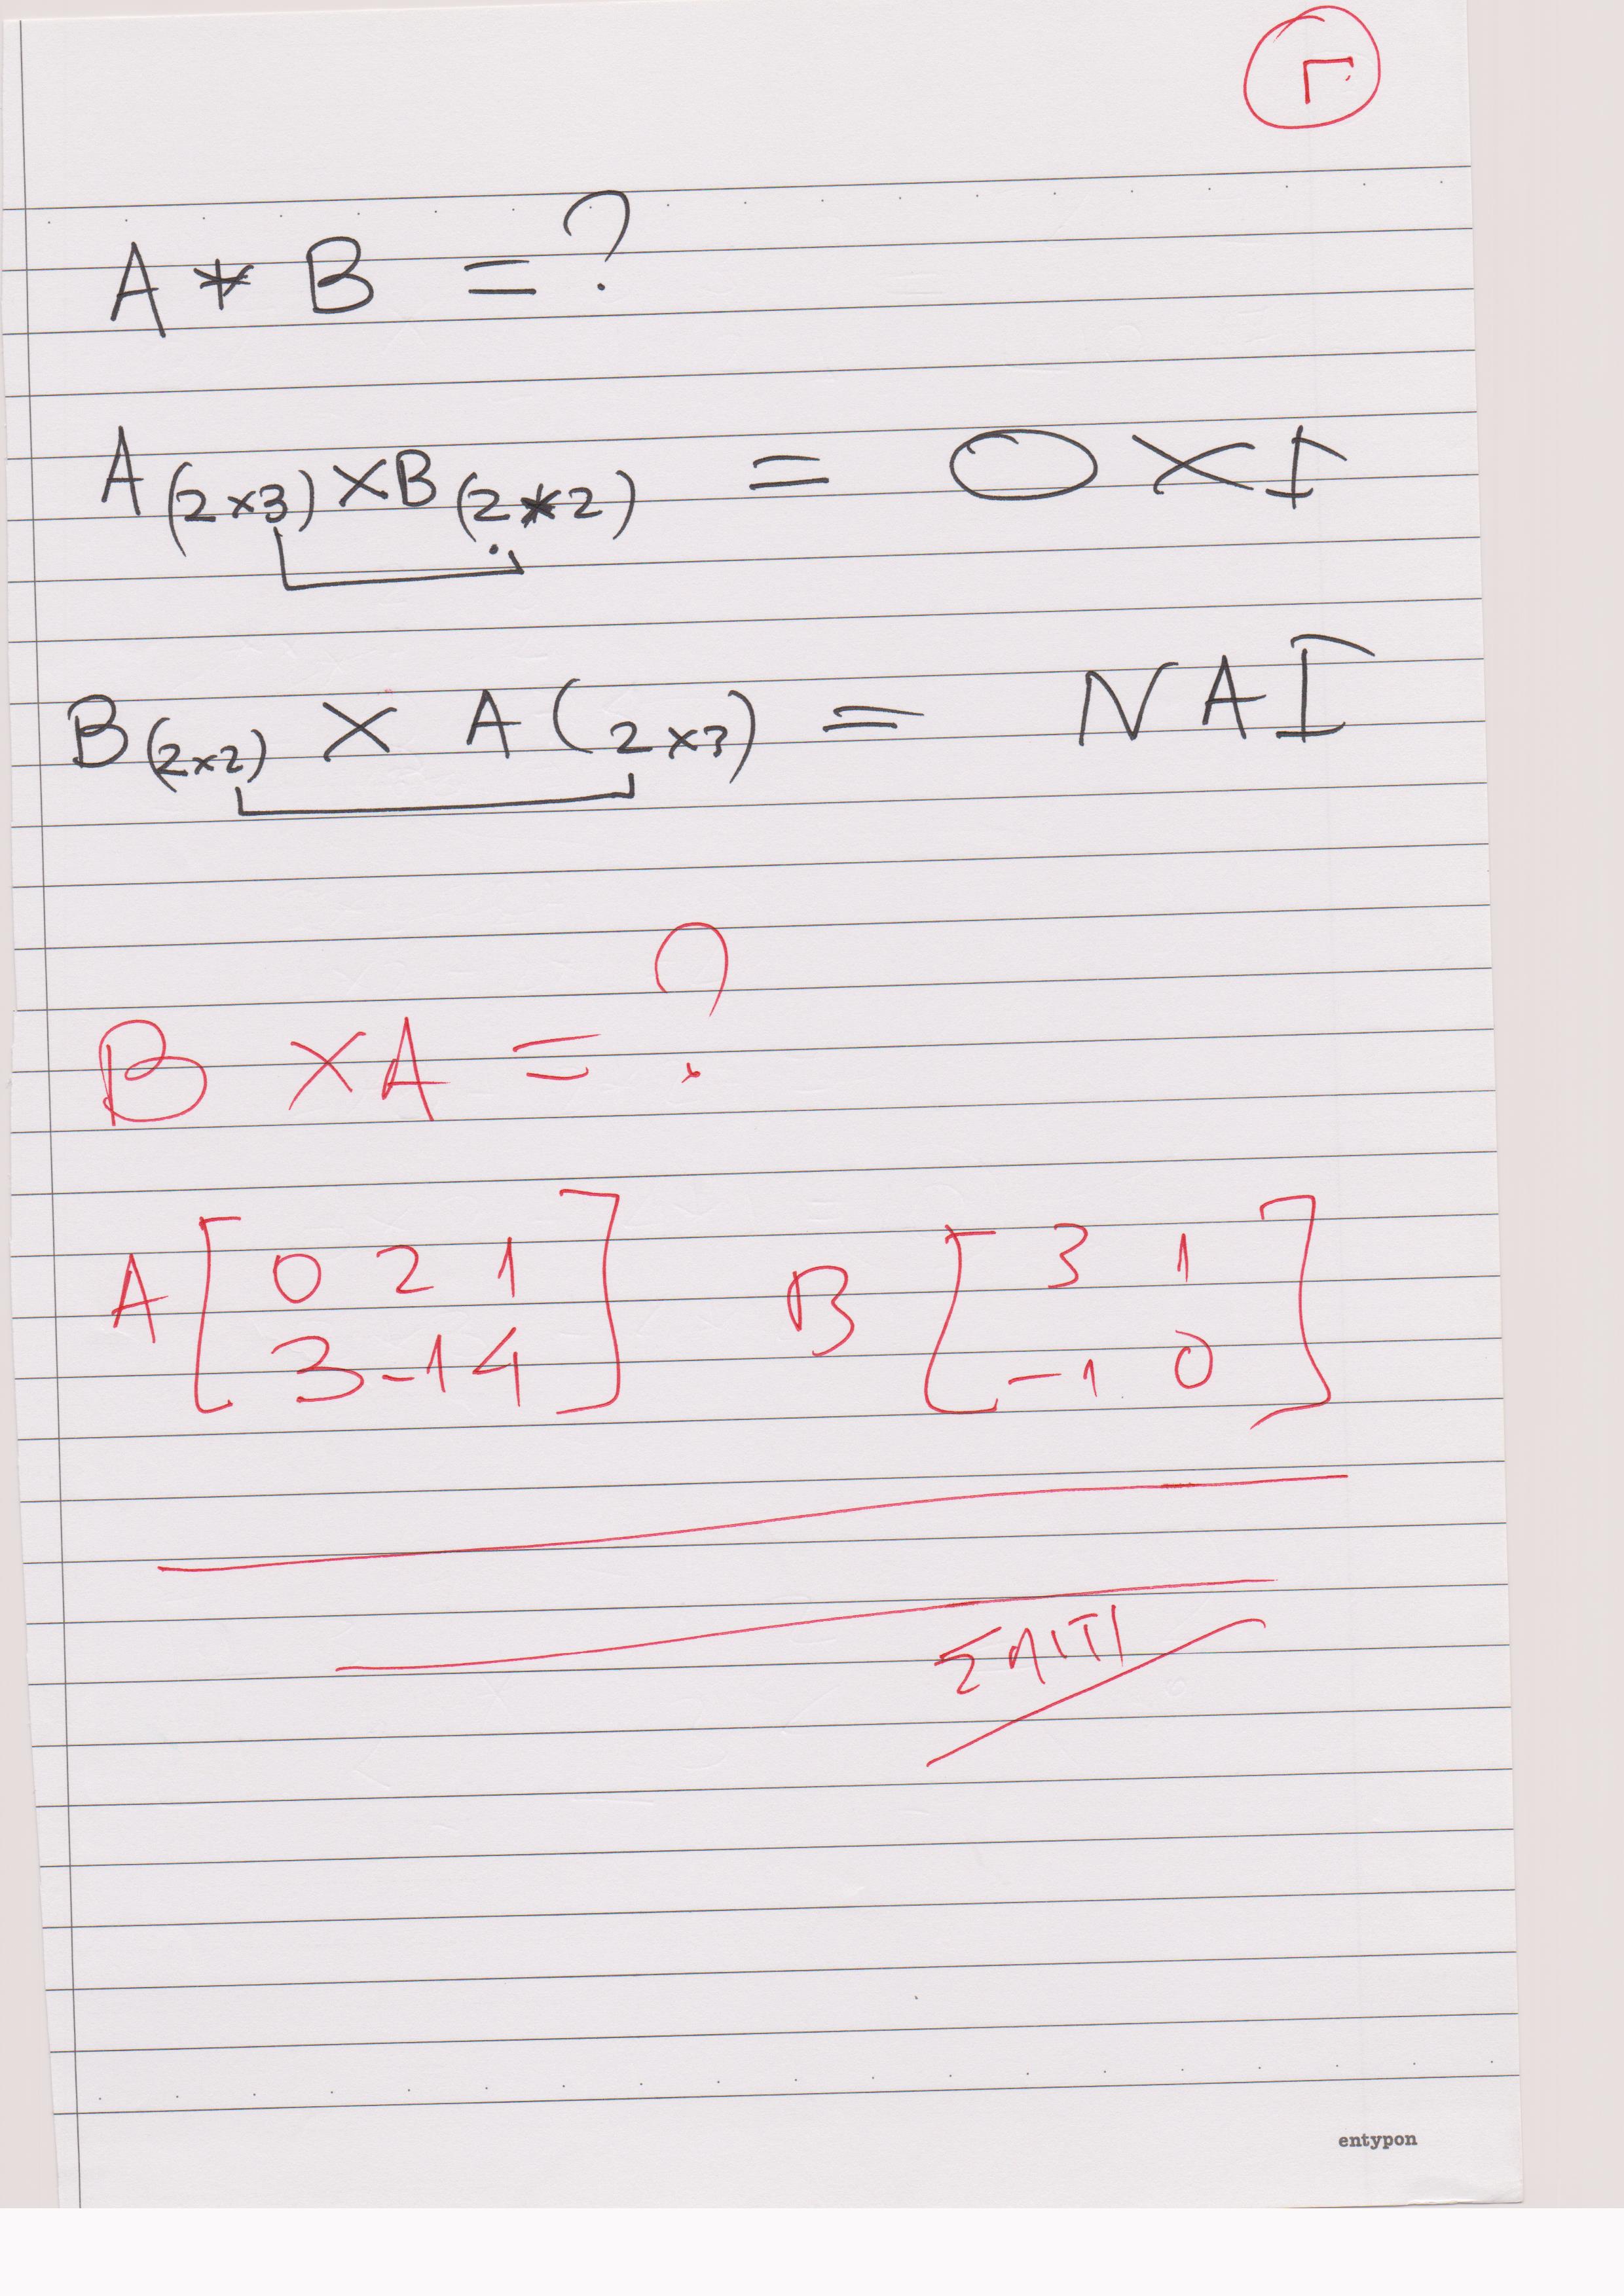 Γ
A * B = ?
A (2x3) X B (2*2) = ΟΧΙ
B (2x2) X A (2x3) = ΝΑΙ
B X A = ?
A [ 0 2 1 B [ 3 1 ]
3 -1 4 ] -1 0
ΣΠΙΤΙ
entypon